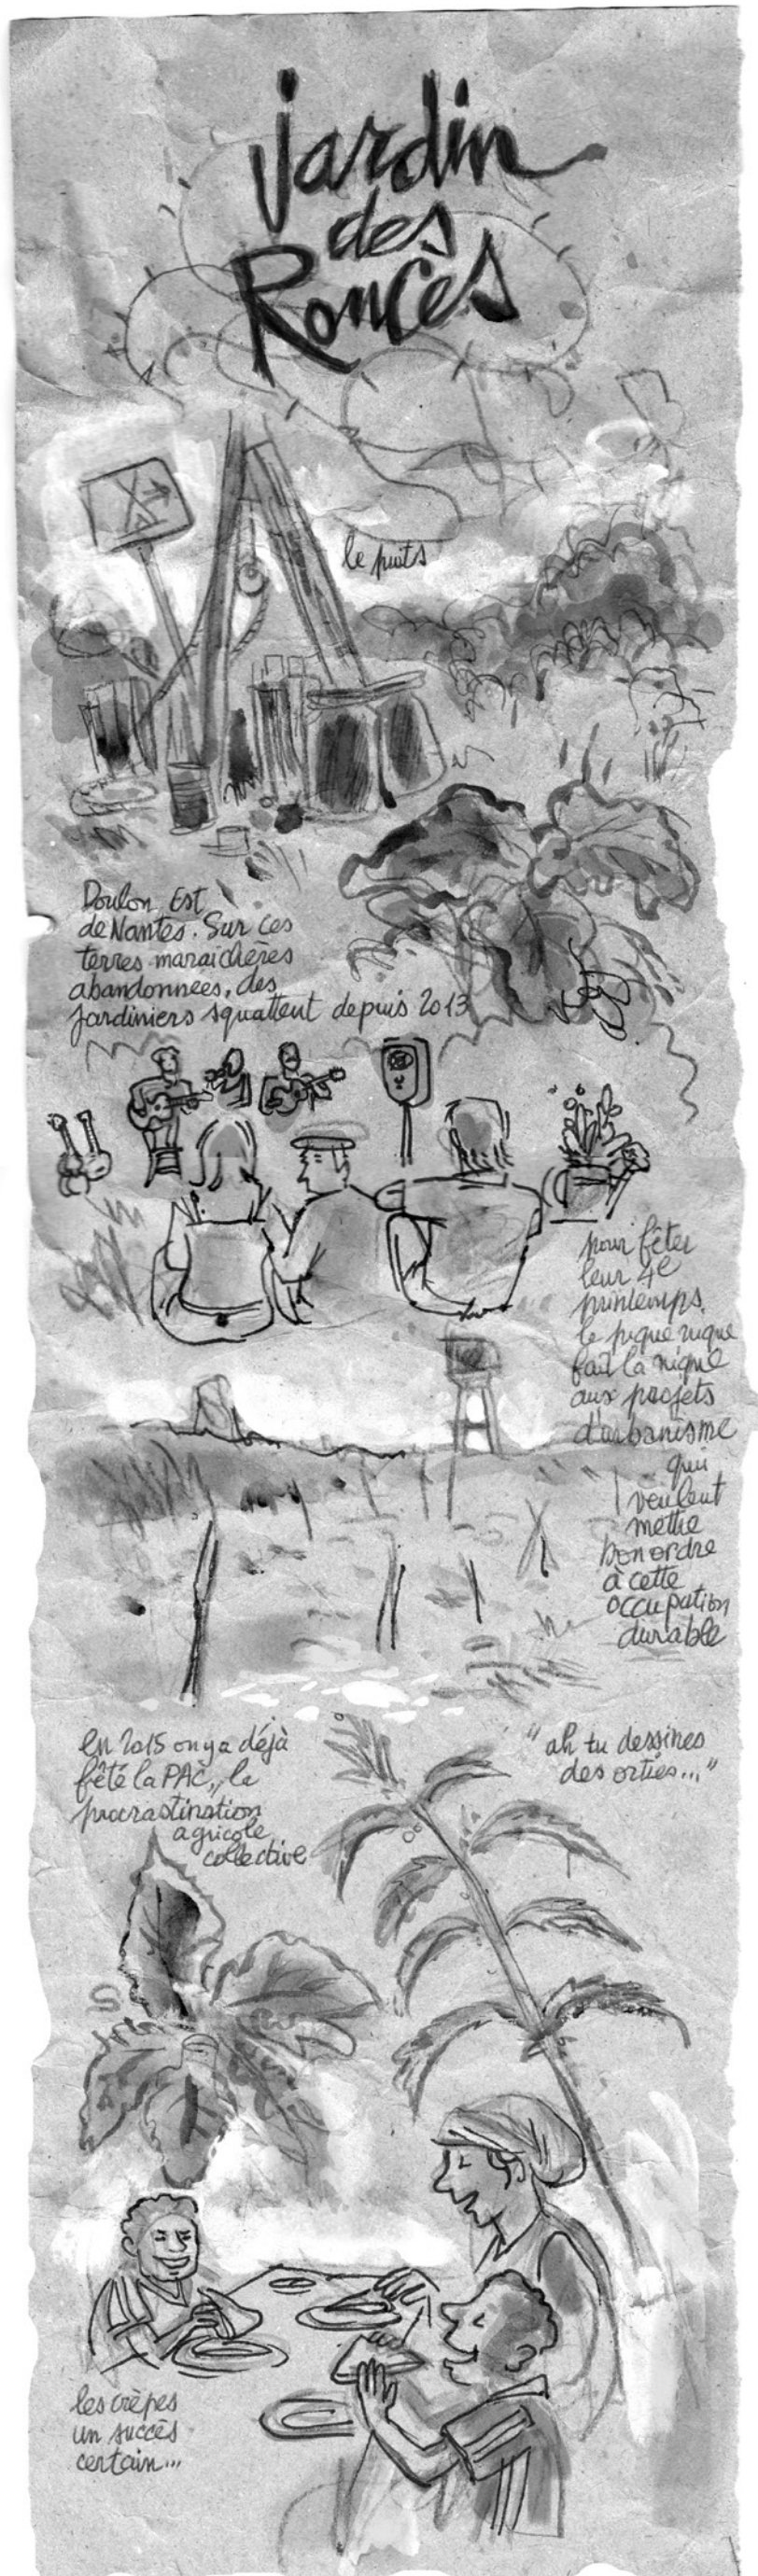 jardin
des
Ronces
le puits
Doulon Est
de Nantes. Sur ces
terres maraichères
abandonnées, des
jardiniers squattent depuis 2013
pour fêter
leur 4e
printemps,
le pique nique
fait la nique
aux projets
d'urbanisme
qui
veulent
mettre
bon ordre
à cette
occupation
durable
en 2015 on y a déjà
fêté la PAC, la
procrastination
agricole
collective
"ah tu dessines
des orties..."
les crêpes
un succès
certain...